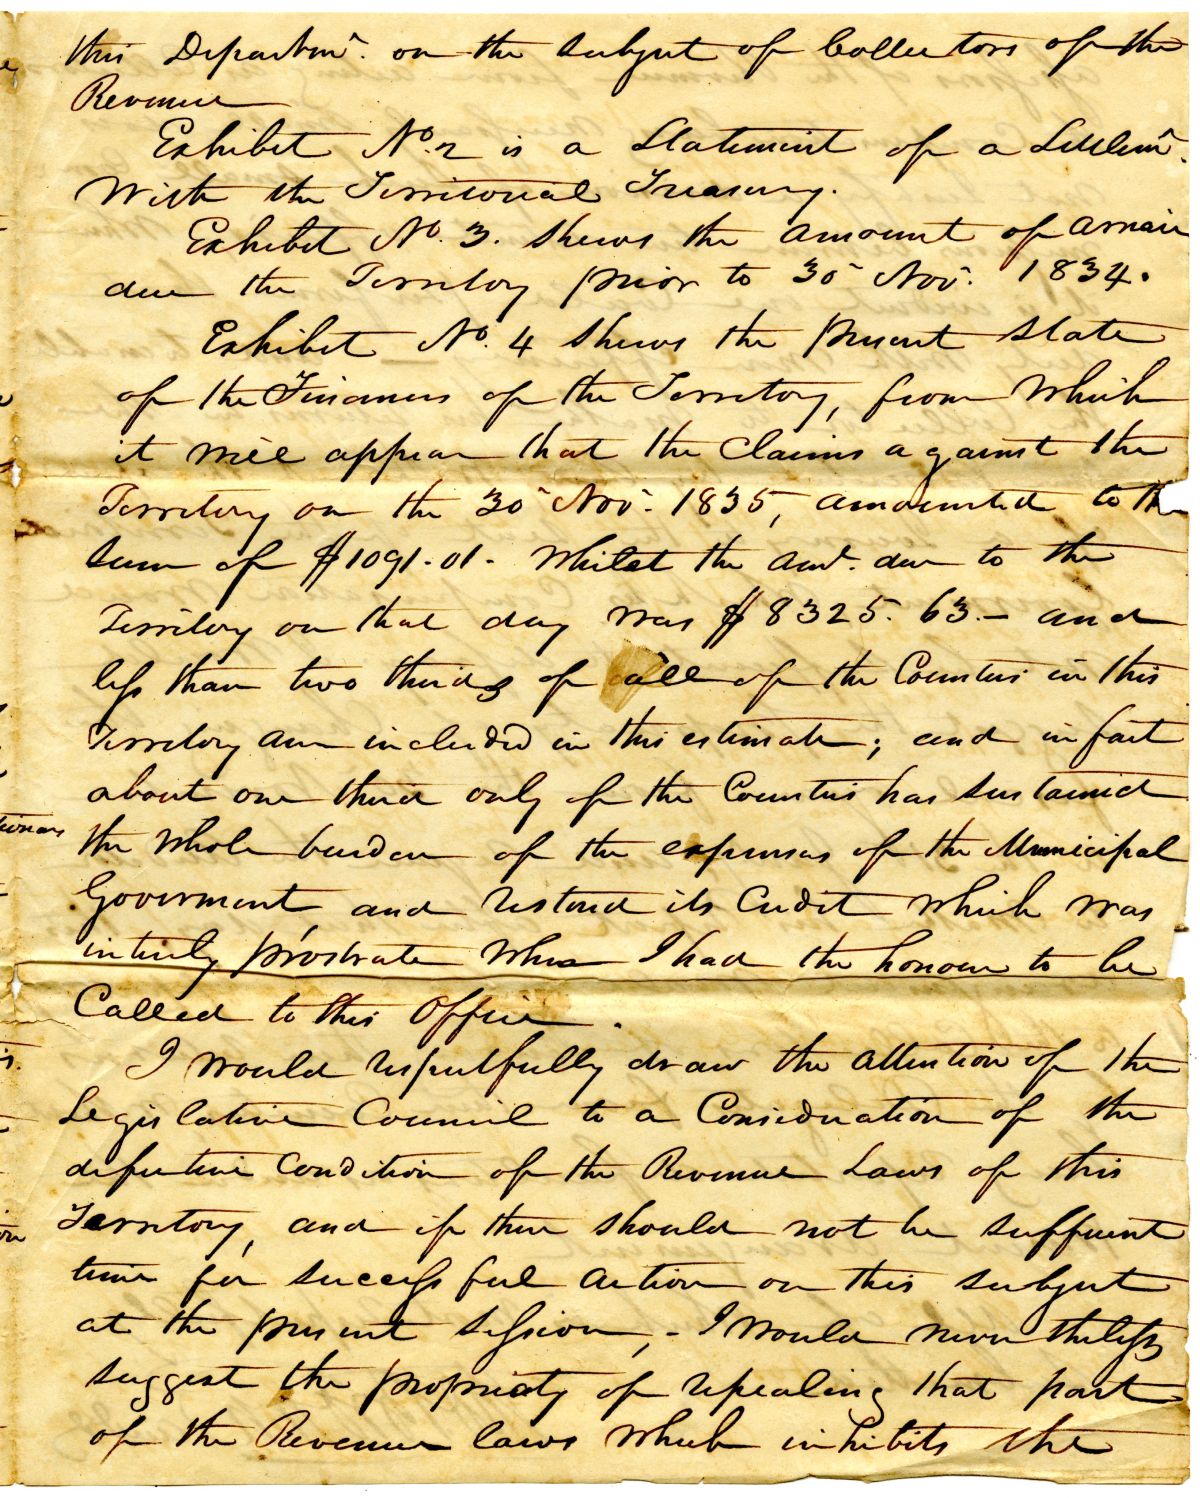 this Departmt. on the subject of Collectors of the
Revenue
Exhibit No. 2 is a Statement of a Settlemt.
With the Territorial Treasury.
Exhibit No. 3. shews the amount of arrair
due the Territory prior to 30 Nov. 1834.
Exhibit No. 4 shews the present state
of the Finances of the Territory, from which
it will appear that the claims against the
Territory on the 30 Nov. 1835, amounted to th
sum of $1091.01. Whilst the amt. due to the
Territory on that day was $8325.63. – and
less than two thirds of all of the Counties in this
Territory are included in this estimate; and in fact
about one third only of the Counties has sustained
the whole burden of the expenses of the Municipal
Goverment and restored its Credit which was
intirely prostrate when I had the honour to be
Called to this Office.
I would respectfully draw the attention of the
Legislative Council to a Consideration of the
defective Condition of the Revenue Laws of this
Territory, and if there should not be sufficient
time for successful action on this subject
at the present session, - I would nevertheless
suggest the propriety of repealing that part
of the Revenue laws which inhibits the